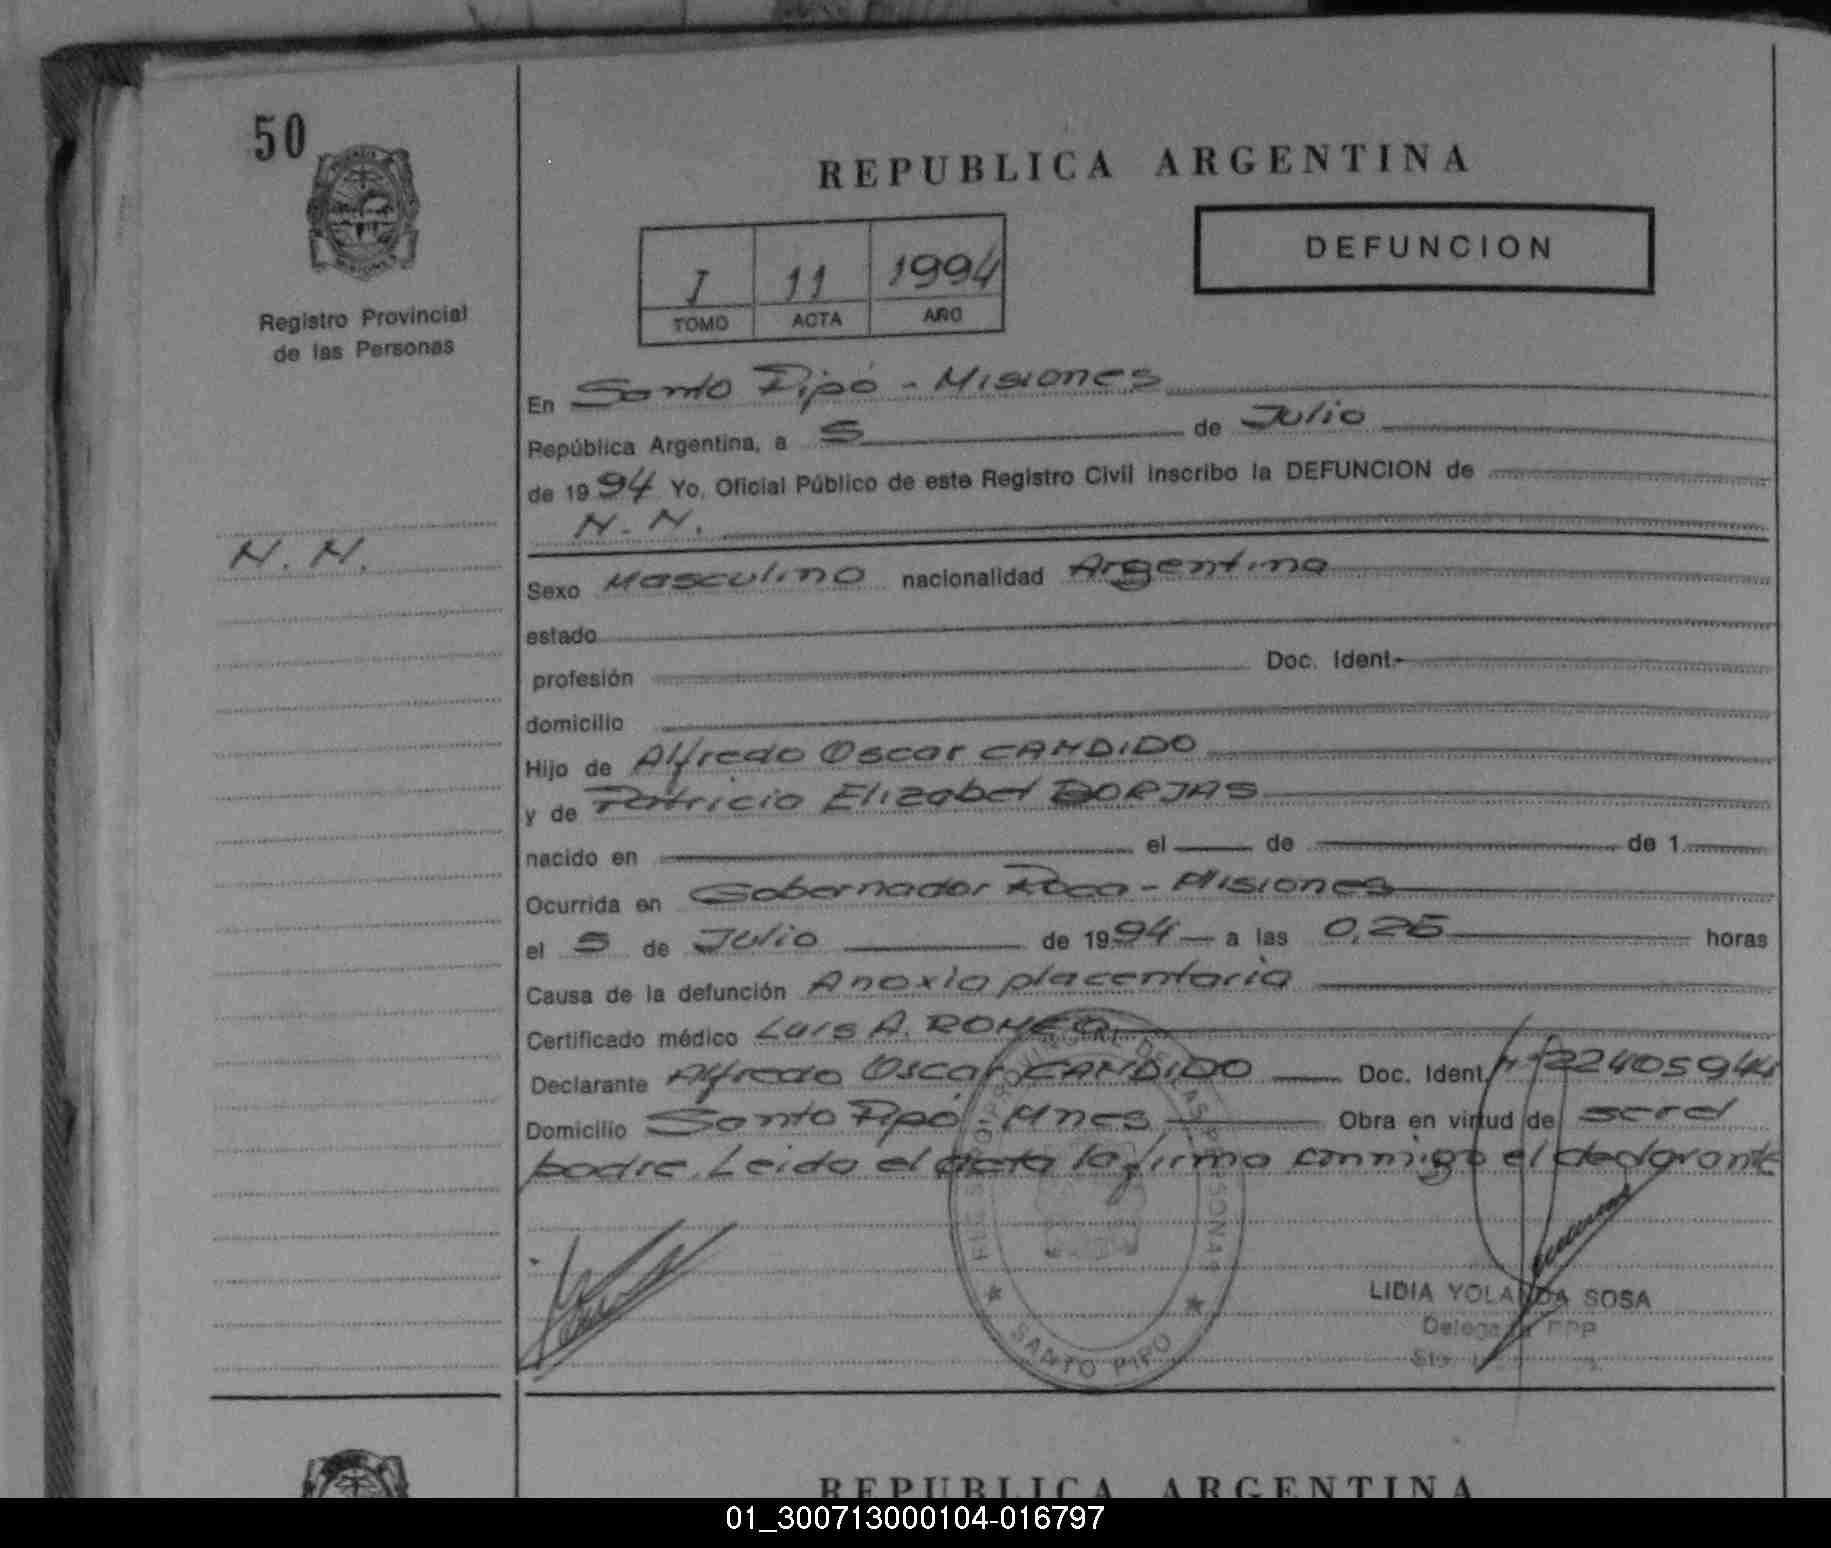 50
REPUBLICA ARGENTINA
DEFUNCION
I 11 1994
TOMO ACTA AÑO
Registro Provincial
de las Personas
En Santo Pipó - Misiones
República Argentina, a 5 de Julio
de 1994 Yo, Oficial Público de este Registro Civil inscribo la DEFUNCION de
N. N.
N. N.
Sexo Masculino nacionalidad Argentina
estado
profesión Doc. Ident.
domicilio
Hijo de Alfredo Oscar CANDIDO
y de Patricia Elizabet BORJAS
nacido en el de de 1
Ocurrida en Gobernador Roca - Misiones
el 5 de Julio de 1994 a las 0,25 horas
Causa de la defunción Anoxia placentaria
Certificado médico Luis A. ROMEO
Declarante Alfredo Oscar CANDIDO Doc. Ident. 22405944
Domicilio Santo Pipó - Mnes Obra en virtud de ser el
padre. Leida el acta la firma conmigo el declarante
REGISTRO PROVINCIAL DE LAS PERSONAS
SANTO PIPO
LIDIA YOLANDA SOSA
Delegada RPP
Sto
REPUBLICA ARGENTINA
01_300713000104-016797